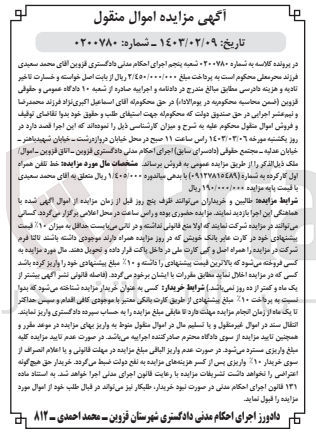 آگهی مزایده اموال منقول
تاریخ: ۱۴۰۳/۰۲/۰۹ ــ شماره: ۰۲۰۰۷۸۰
در پرونده کلاسه به شماره ۰۲۰۰۷۸۰ شعبه پنجم اجرای احکام مدنی دادگستری قزوین آقای محمد سعیدی
فرزند محرمعلی محکوم است به پرداخت مبلغ ۲/۴۵۰/۰۰۰/۰۰۰ ریال از بابت اصل خواسته و خسارت تاخیر
تادیه و هزینه دادرسی مطابق مبالغ مندرج در دادنامه و اجراییه صادره از شعبه ۱۰ دادگاه عمومی و حقوقی
قزوین (ضمن محاسبه محکوم‌به در یوم‌الاداء) در حق محکوم‌له آقای اسماعیل اکبری‌نژاد فرزند محمدرضا
و نیم‌عشر اجرایی در حق صندوق دولت که محکوم‌له جهت استیفای طلب و حقوق خود بدوا تقاضای توقیف
و فروش اموال منقول محکوم علیه به شرح و میزان کارشناسی ذیل را نموده‌اند که این اجرا قصد دارد در
روز یکشنبه مورخه ۱۴۰۳/۰۳/۰۶ راس ساعت ۱۱ صبح در محل خیابان دروازه‌رشت ـ خیابان شهیدباهنر ـ
خیابان عدلیه ـ مجتمع حقوقی (دادسرای سابق) اجرای احکام مدنی دادگستری قزوین ـ اتاق قزوین ـ اموال/
ملک ذیل‌الذکر را از طریق مزایده عمومی به فروش برساند. مشخصات مال مورد مزایده: خط تلفن همراه
اول کارکرده به شماره (۰۹۱۲۷۸۱۵۴۸۹) با بدهی میاندوره ۱/۴۰۵/۰۰۰ ریال متعلق به اقای محمد سعیدی
با قیمت پایه مزایده ۱۹۰/۰۰۰/۰۰۰ ریال
شرایط مزایده: طالبین و خریداران می‌توانند ظرف پنج روز قبل از زمان مزایده از اموال آگهی شده با
هماهنگی این اجرا بازدید نمایند. مزایده حضوری بوده و راس ساعت در محل اعلامی برگزار می‌گردد. کسانی
می‌توانند در مزایده شرکت نمایند که اولا منع قانونی نداشته و در ثانی می‌بایست حداقل به میزان ۱۰٪ قیمت
پیشنهادی خود در کارت عابر بانک خویش که در روز مزایده همراه دارند موجودی داشته باشند ثالثا فرم
شرکت در مزایده را همراه اصل و کپی کارت ملی در داخل پاکت قرار داده و تحویل دهند. مال مورد مزایده به
کسی فروخته می‌شود که بالاترین قیمت پیشنهادی را داشته و ۱۰٪ مبلغ پیشنهادی خود را واریز کرده باشد
کسی که در مزایده اخلال نماید مطابق مقررات با ایشان برخورد می‌گردد. (فاصله قانونی نشر آگهی بیشتر از
یک ماه و کمتر از ده روز نمی‌باشد.) شرایط خریدار: کسی به عنوان خریدار مزایده شناخته می‌شود که بدوا
نسبت به پرداخت ۱۰٪ مبلغ پیشنهادی از طریق کارت بانکی معتبر با موجودی کافی اقدام و سپس حداکثر
تا یک ماه از زمان انجام مزایده مهلت دارد تا مابقی مبلغ مزایده را به حساب سپرده دادگستری واریز نمایند.
انتقال سند در اموال غیرمنقول و یا تسلیم مال در اموال منقول منوط به واریز بهای مزایده در موعد مقرر و
همچنین تایید مزایده از سوی دادگاه محترم صادرکننده اجراییه می‌باشد. در صورت عدم تایید مزایده کلیه
مبلغ واریزی مسترد می‌شود. در صورت عدم واریز الباقی مبلغ مزایده در مهلت قانونی و یا اعلام انصراف از
سوی خریدار ۱۰٪ واریزی پس از کسر هزینه‌های مزایده به نفع دولت ضبط می‌گردد. خریدار حق هیچ‌گونه
اعتراضی را نخواهد داشت تشریفات مزایده با رعایت قانون اجرای مدنی اجرا خواهد شد. به استناد ماده
۱۳۱ قانون اجرای احکام مدنی در صورت نبود خریدار، طلبکار نیز می‌تواند در قبال طلب خود از اموال مورد
مزایده را قبول نماید.
دادورز اجرای احکام مدنی دادگستری شهرستان قزوین ـ محمد احمدی ـ ۸۱۲